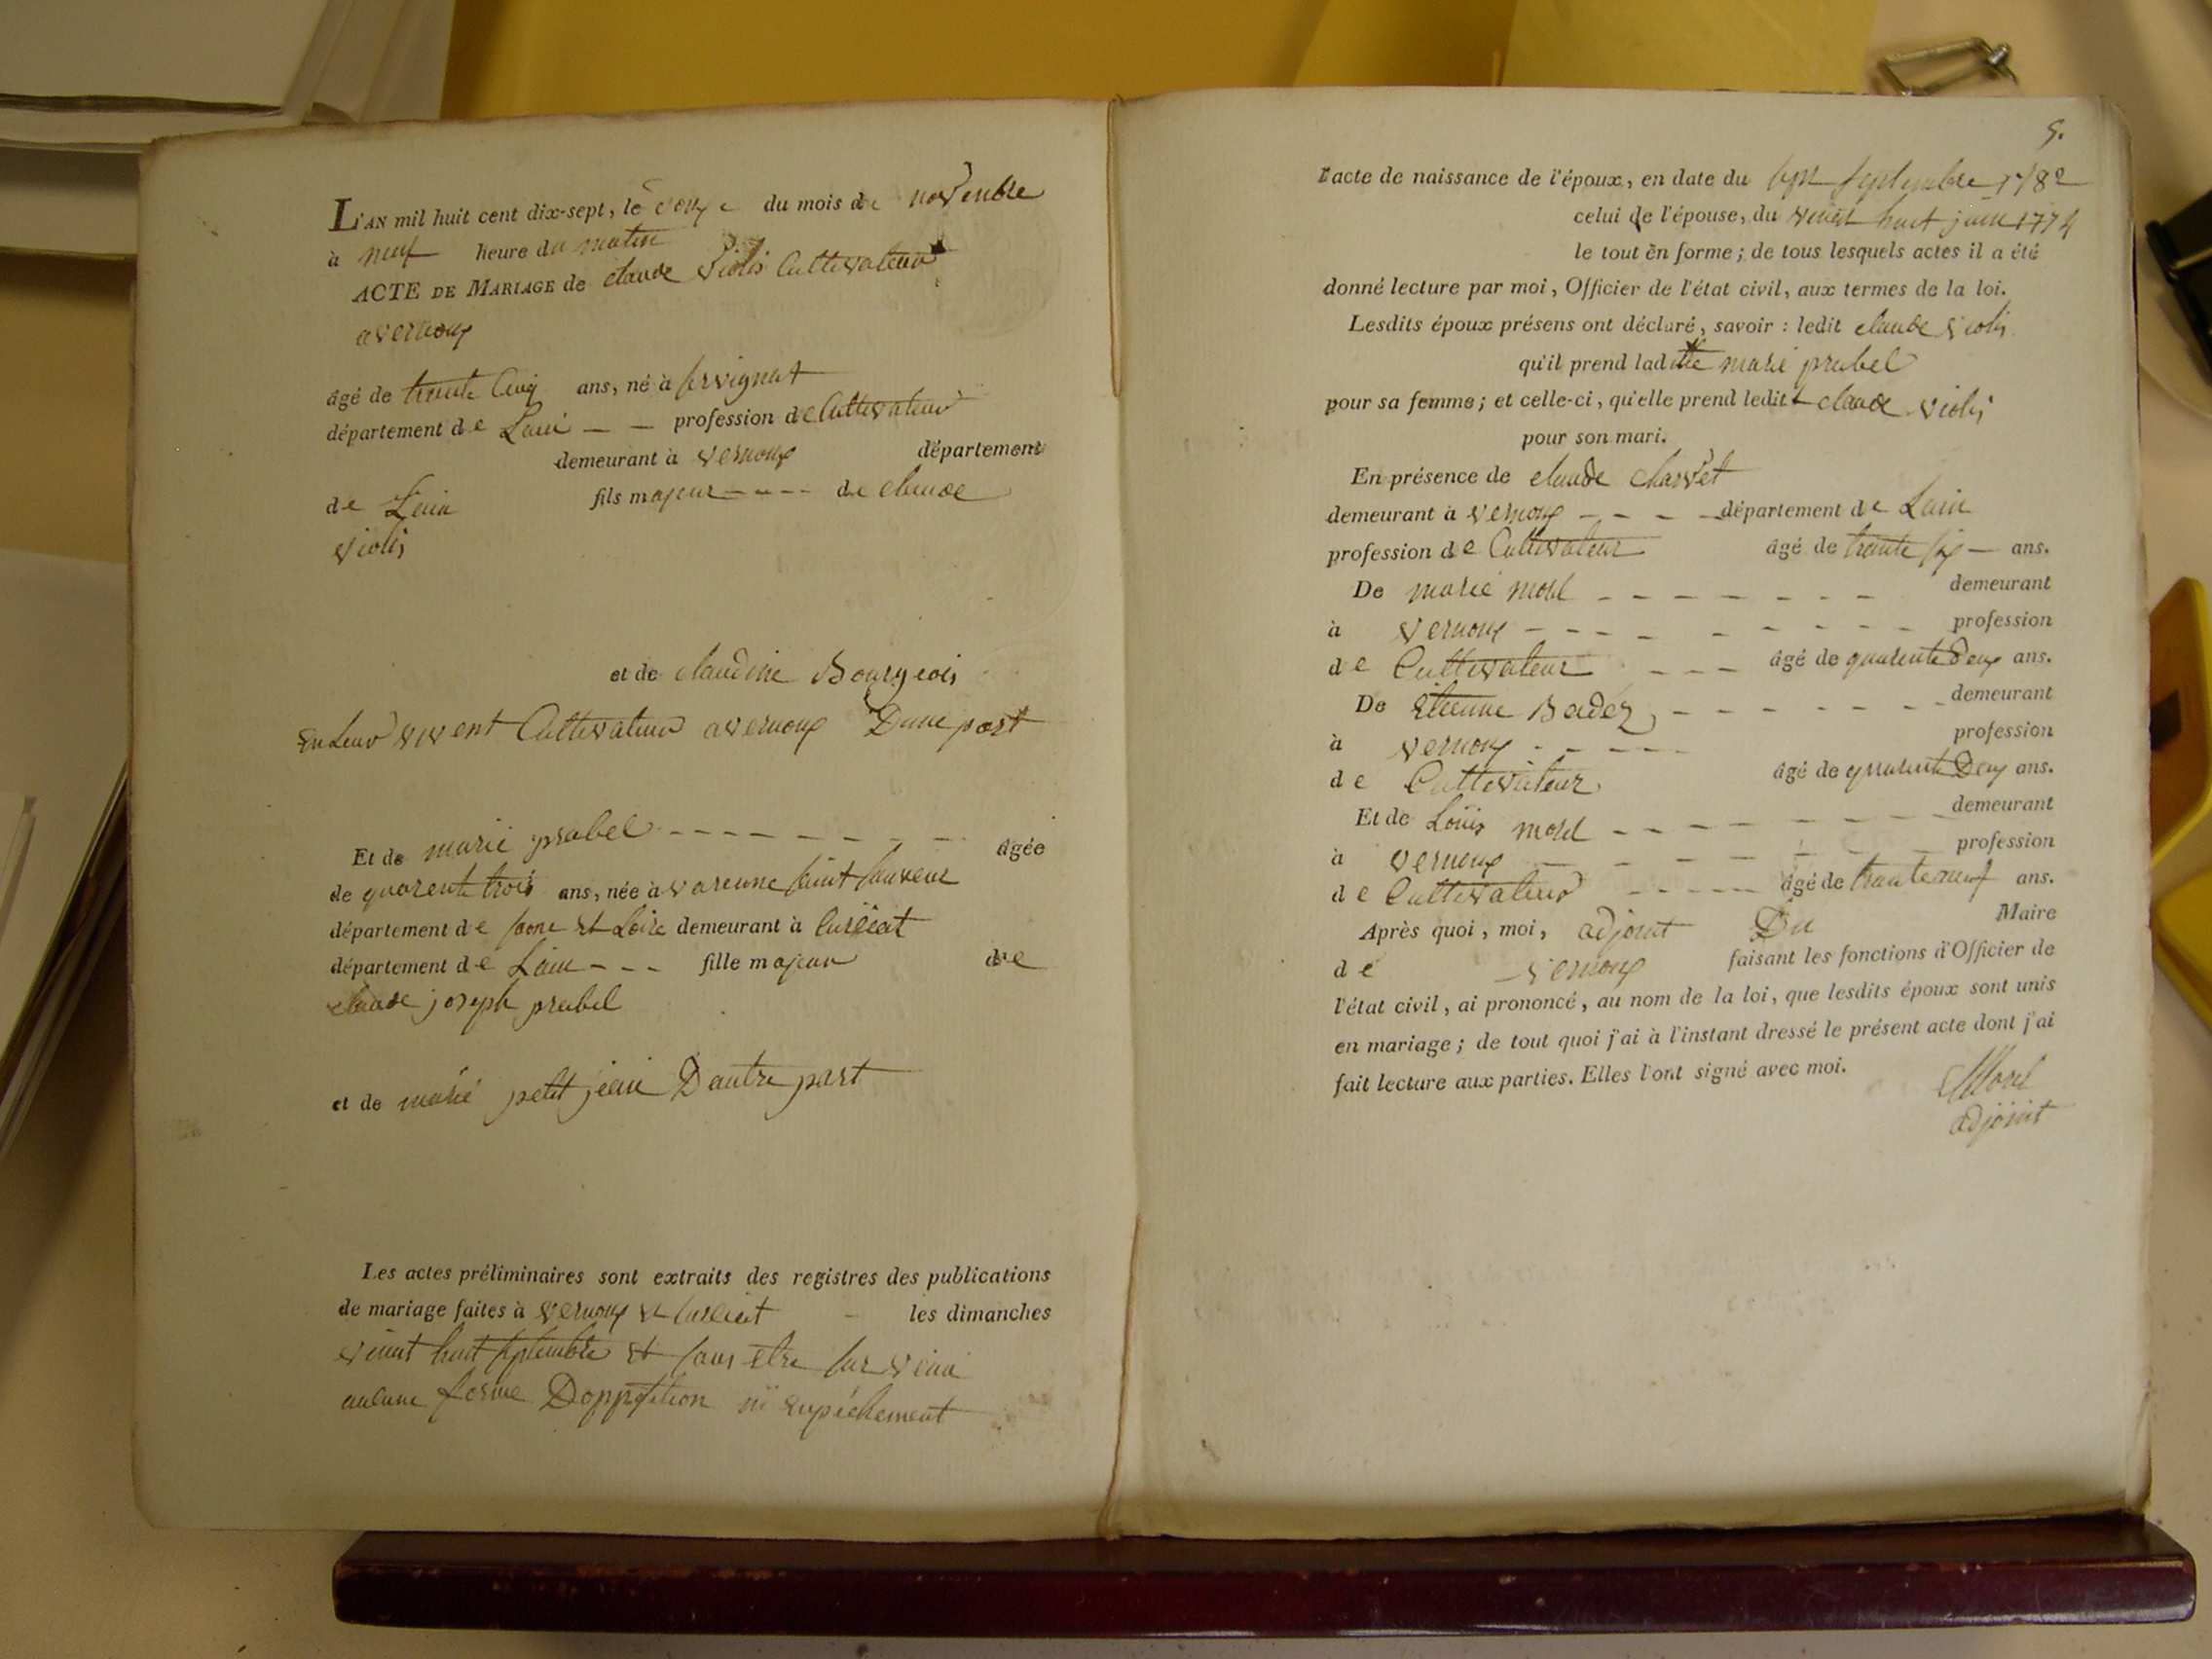 L'AN mil huit cent dix-sept, le douze du mois de novembre
à neuf heure du matin
ACTE DE MARIAGE de claude violis Cultivateur
a vernoux
âgé de trente cinq ans, né à servignat
département de Lain — — profession de Cultivateur
demeurant à vernoux département
de Lain fils majeur - - - - de claude
violis
et de claudine Bourgeois
En leur vivent Cultivateur a vernoux Dune part
Et de marie prabel - - - - - - - - - âgée
de quarente trois ans, née à varenne saint sauveur
département de saone et Loire demeurant à Curciat
département de Lain - - - fille majeur de
claude joseph prabel
et de marie petit jean Dautre part
Les actes préliminaires sont extraits des registres des publications
de mariage faites à vernoux et Curciat - les dimanches
vint huit septembre et sans etre sur venu
aucune forme Dopposition ni enpéchement
5.
l'acte de naissance de l'époux, en date du sept septembre 1782
celui de l'épouse, du vint huit juin 1774
le tout en forme ; de tous lesquels actes il a été
donné lecture par moi, Officier de l'état civil, aux termes de la loi.
Lesdits époux présens ont déclaré, savoir : ledit claude violis
qu'il prend ladite marie prabel
pour sa femme ; et celle-ci, qu'elle prend ledit claude violis
pour son mari.
En présence de claude charvet
demeurant à vernoux - - - - département de Lain
profession de Cultivateur âgé de trante six — ans.
De marie morel - - - - - - - - demeurant
à vernoux - - - - - - - - - - profession
de Cultivateur - - - âgé de quarente deux ans.
De Etienne Badez - - - - - - - - demeurant
à vernoux - - - - - profession
de Cultivateur âgé de quarente Deux ans.
Et de Louis morel - - - - - - - - demeurant
à vernoux - - - - - - - profession
de Cultivateur - - - - - âgé de trante neuf ans.
Après quoi, moi, adjoint Du Maire
de vernoux faisant les fonctions d'Officier de
l'état civil, ai prononcé, au nom de la loi, que lesdits époux sont unis
en mariage ; de tout quoi j'ai à l'instant dressé le présent acte dont j'ai
fait lecture aux parties. Elles l'ont signé avec moi.
Morel
adjoint